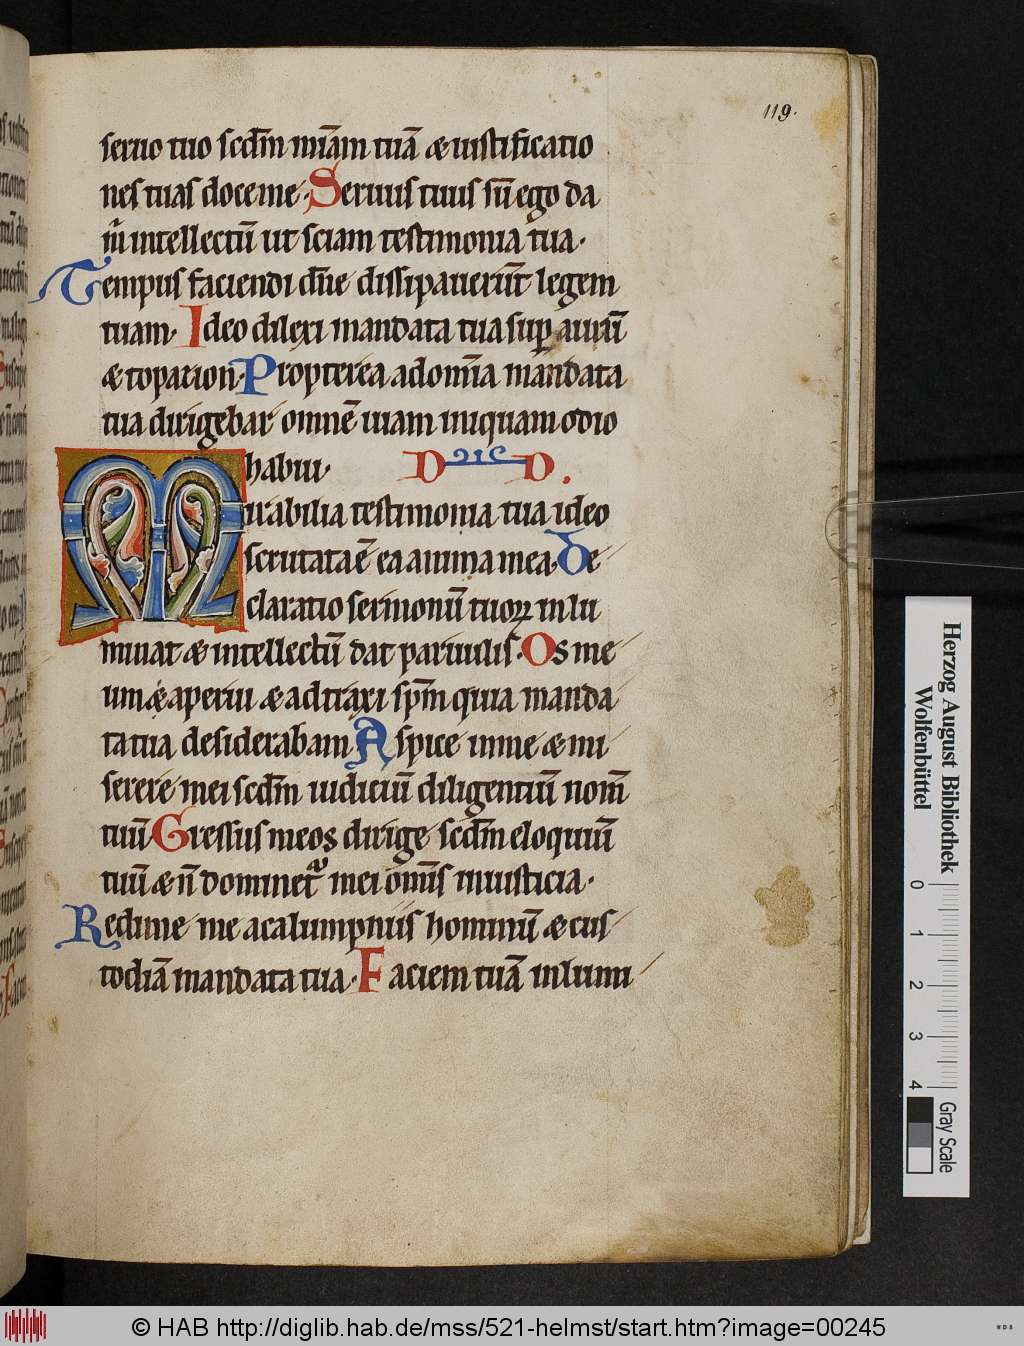 119.
seruo tuo scdm̄ mīam tuā & iustificatio
nes tuas doce me. Seruus tuus sū ego da
m̄ intellectū ut sciam testimonia tua.
Tempus faciendi dn̄e dissipauerūt legem
tuam. Ideo dilexi mandata tua suꝑ aurū
& topazion. Propterea ad om̄ia mandata
tua dirigebar omnē uiam iniquam odio
habui. D D.
Mirabilia testimonia tua ideo
scrutata ē ea anima mea. De
claratio sermonū tuoꝝ inlu
minat & intellectū dat paruulis. Os me
um aperui & adtraxi spm̄ quia manda
ta tua desiderabam. Aspice in me & mi
serere mei scdm̄ iudiciū diligentiū nom̄
tuū. Gressus meos dirige scdm̄ eloquiū
tuū & n̄ dominetᷓ mei om̄is iniusticia.
Redime me a calumpniis hominū & cus
todiā mandata tua. Faciem tuā inlumi
Herzog August Bibliothek
Wolfenbüttel
0 1 2 3 4
Gray Scale
© HAB http://diglib.hab.de/mss/521-helmst/start.htm?image=00245